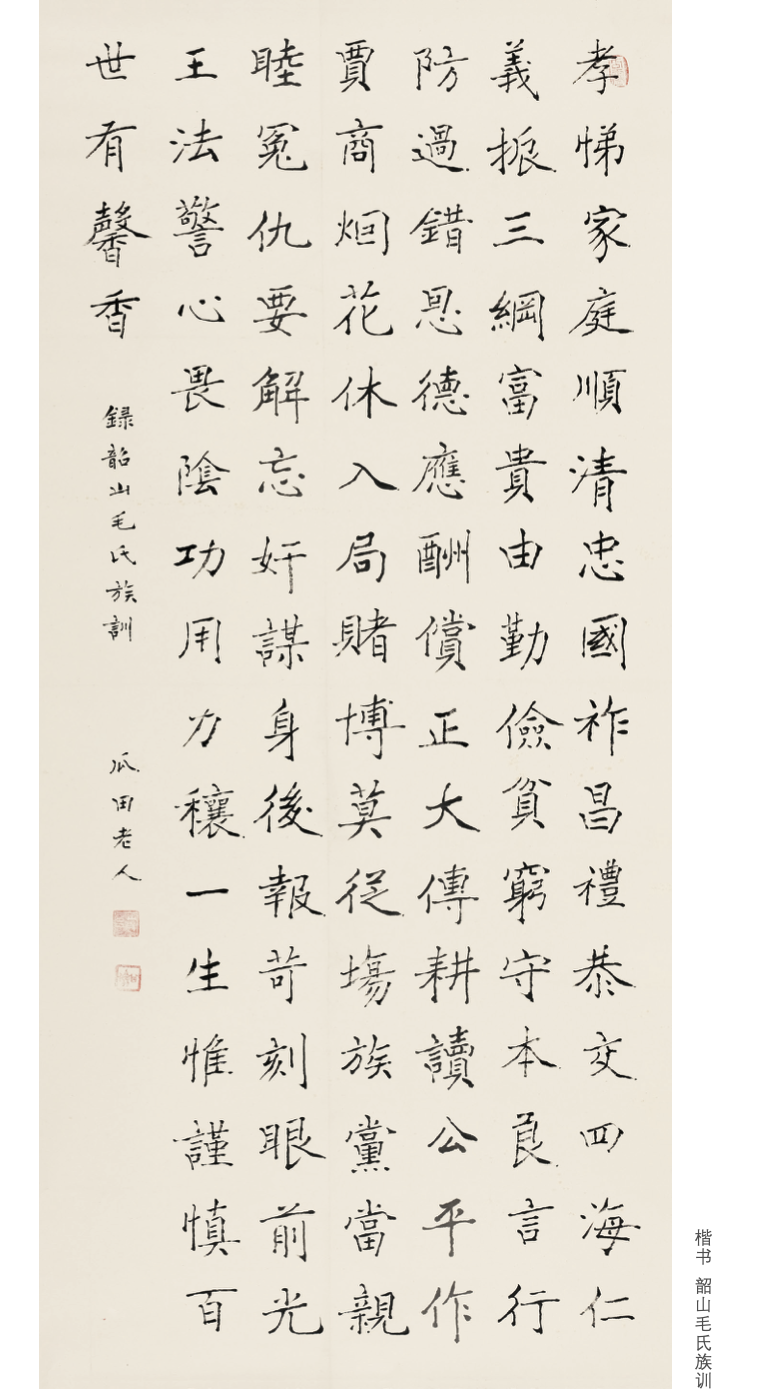 孝悌家庭順清忠國祚昌禮恭交四海仁
義振三綱富貴由勤儉貧窮守本良言行
防過錯恩德應酬償正大傳耕讀公平作
賈商烟花休入局賭博莫從場族黨當親
睦冤仇要解忘奸謀身後報苛刻眼前光
王法警心畏陰功用力穰一生惟謹慎百
世有馨香
録韶山毛氏族訓
瓜田老人
楷书 韶山毛氏族训